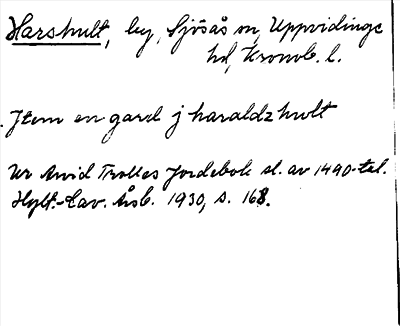 Harshult, by, Sjösås sn, Uppvidinge
hd, Kronob. l.
Jtem en gard j haraldz hult
Ur Arvid Trolles Jordebok sl. av 1490-tal.
Hylt.-Cav. Årsb. 1930, s. 168.